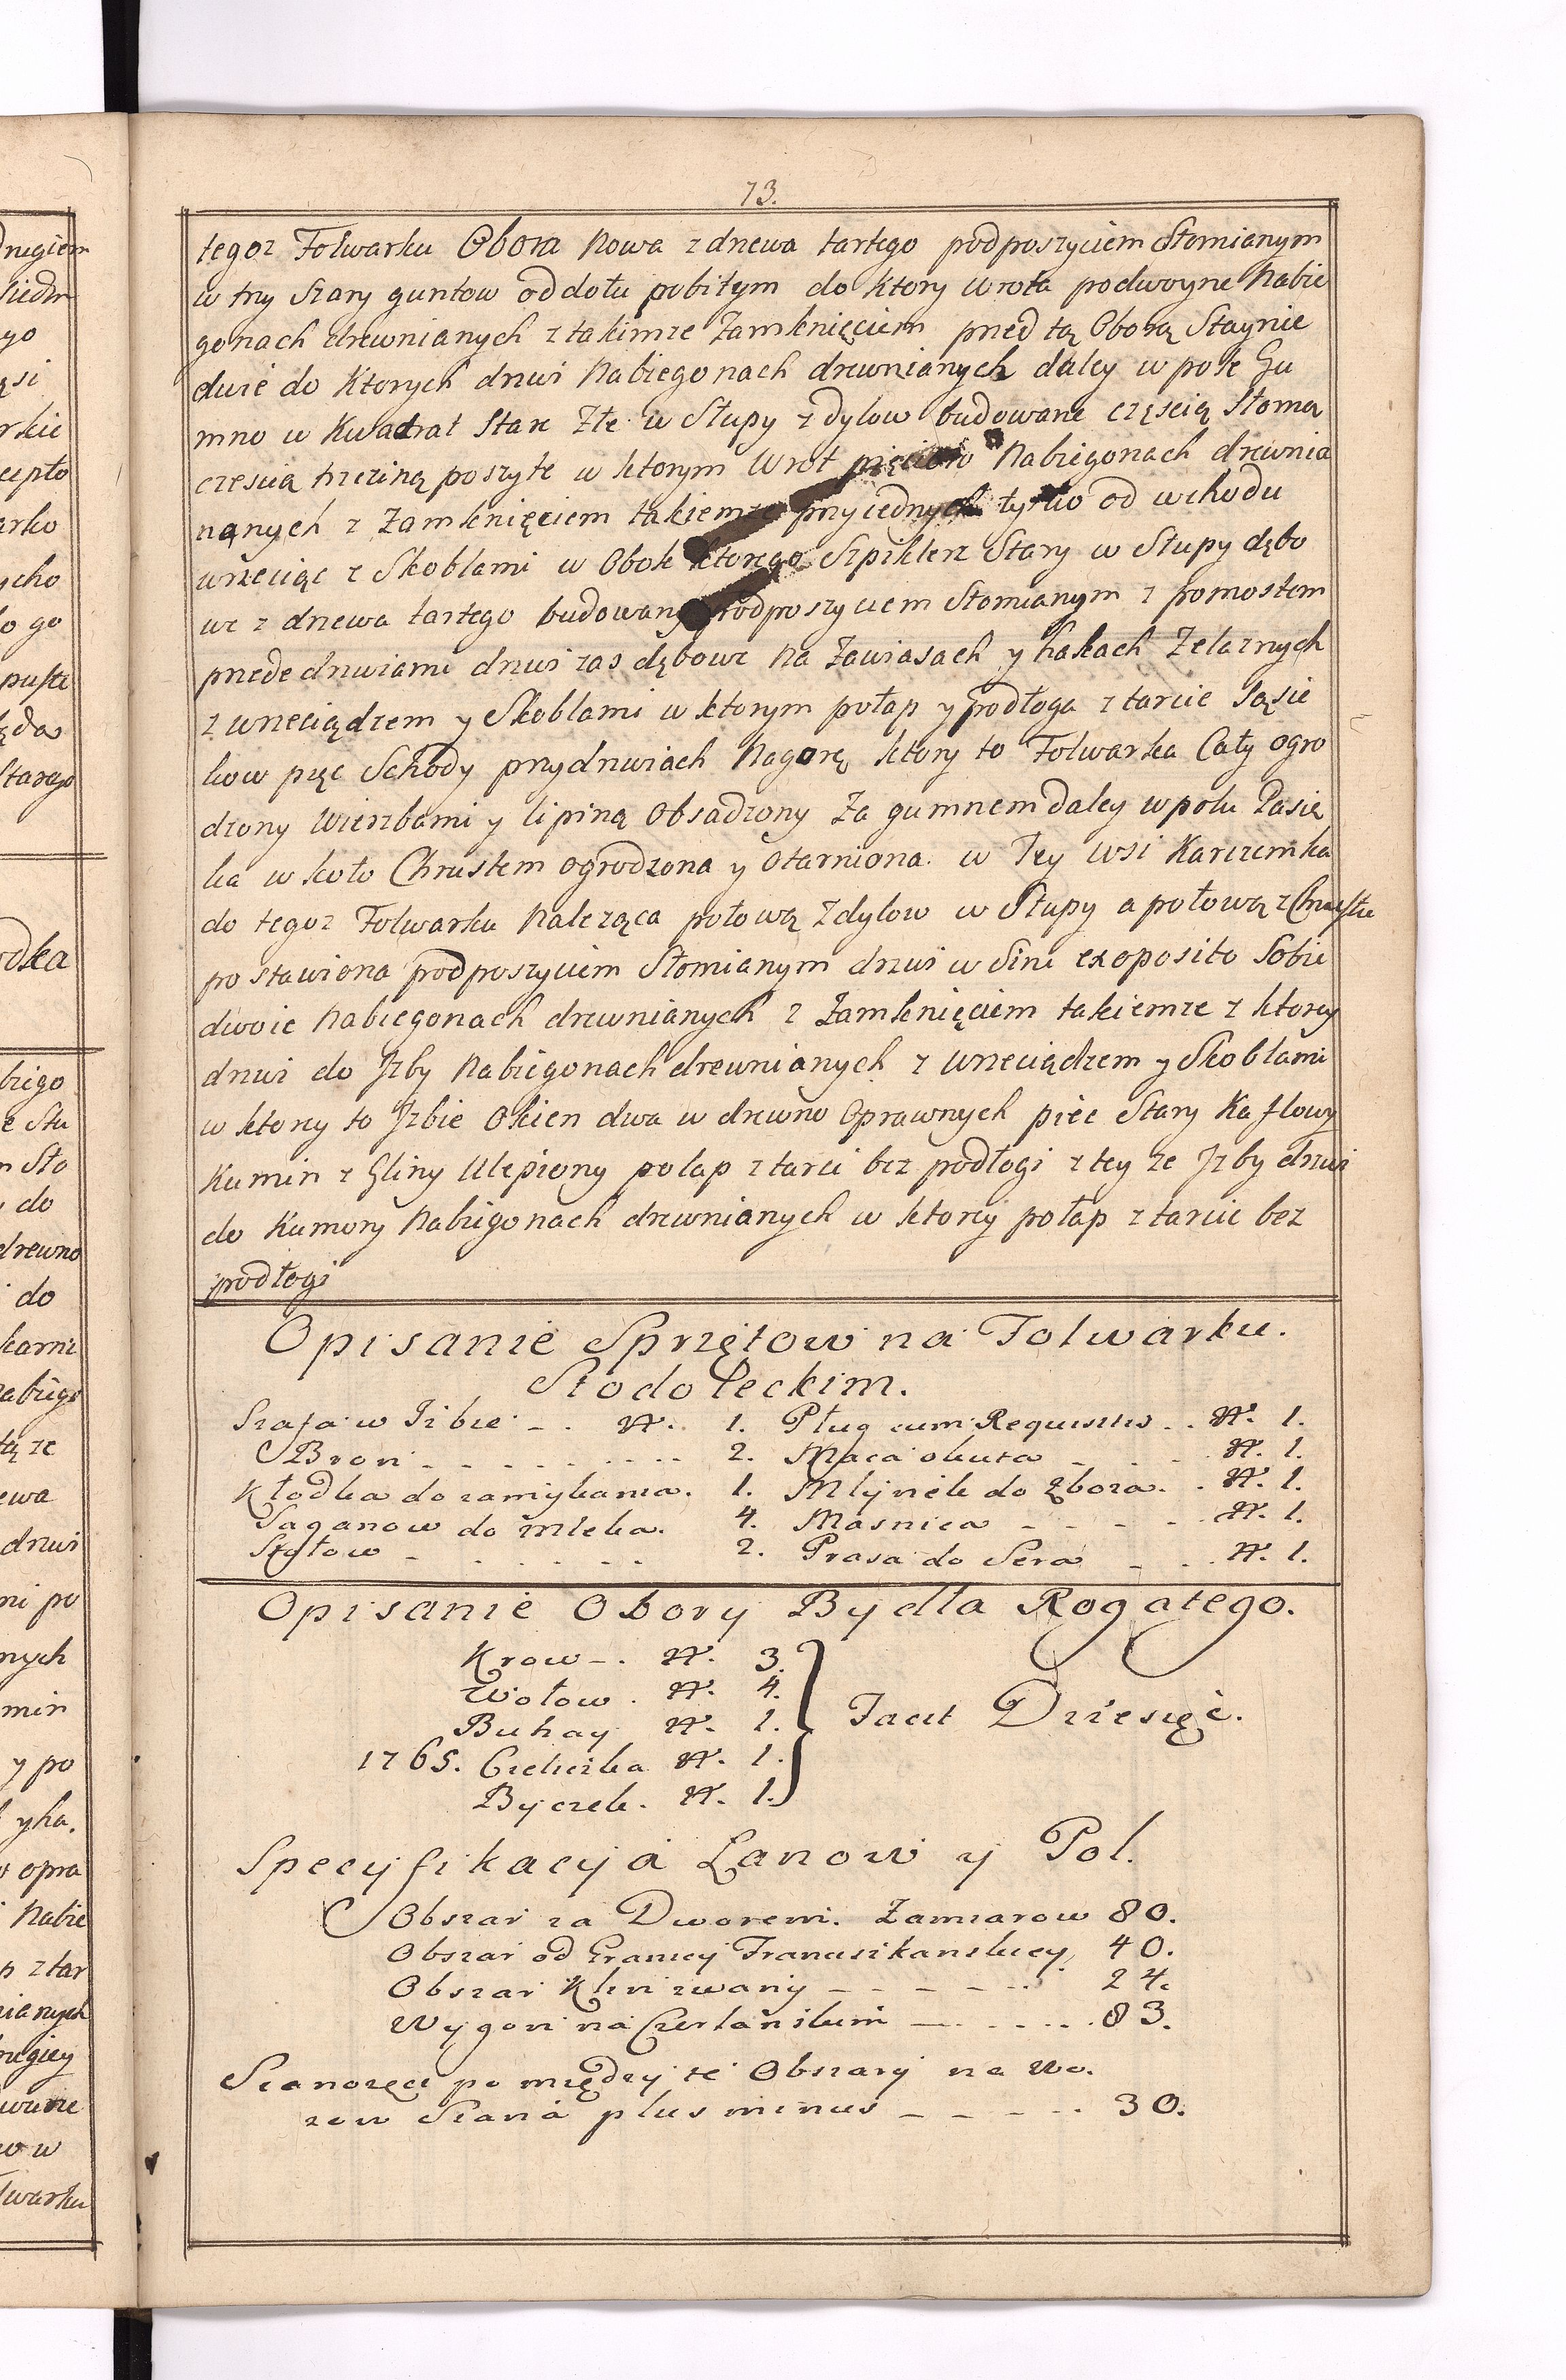 73.
tegoz Folwarku Obora Nowa z drzewa tartego podposzyciem Słomianym
w trzy Szary guntow od dołu pobitym do ktory wrota podwoyne Nabie
gonach drewnianych z takimze Zamknięciem przed tą Oborą Staynie
dwie do Ktorych drzwi Nabiegonach drewnianych daley w pole Gu
mno w Kwadrat Stare Złe w Słupy z dylow budowane częscią Słomą
czescią trzciną poszyte w ktorym Wrot pięcioro Nabiegonach drewnia
nanych z Zamknięciem takiemze przy iednych tylko od wchodu
wrzeciąc z Skoblami w Obok ktorego Szpiklerz Stary w Słupy dębo
we z drzewa tartego budowany podposzyciem Słomianym z pomostem
przede drzwiami drzwi zas dębowe Na Zawiasach y hakach Zelaznych
z wrzeciądzem y Skoblami w ktorym połap y podłoga z tarcic Sąsie
kow pięc Schody przydrzwiach Nagorę ktory to Folwarka Cały ogro
dzony Wierzbami y lipiną Obsadzony Za gumnem daley w polu Pasie
ka w koło Chrustem ogrodzona y otarniona. w Tey wsi Karczemka
do tegoz Folwarku Naleząca połową Z dylow w Słupy a połową z Chrustu
postawiona podposzyciem Słomianym drzwi w Sini exoposito Sobie
dwoie Nabiegonach drewnianych z Zamknięciem takiemze z ktorey
drzwi do Jzby Nabiegonach drewnianych z wrzeciądzem y Skoblami
w ktory to Jzbie Okien dwa w drewno Oprawnych piec Stary Kaflowy
Kumin z Gliny Ulepiony polap z tarci bez podłogi z tey ze Jzby drzwi
do Kumory Nabiegonach drewnianych w ktorey połap z tarcic bez
podłogi
Opisanie Sprzętow na Folwarku.
Stodołeckim.
Szafa w Jzbie - . N. 1. Pług cum Requisitis . . N. 1.
Bron - - - - - - 2. Maca okuta - - - N. 1.
Kłodka do zamykania. 1. Młynek do Zboza. . N. 1.
Saganow do mleka. 4. Masnica - - - - N. 1.
Stołow - - - - - 2. Prasa do Sera - - . N. 1.
Opisanie Obory Bydła Rogatego.
Krow - . N. 3.
Wołow . N. 4.
Buhay N. 1. Facit Dziesięć.
1765. Cieliczka N. 1.
Byczek. N. 1.
Specyfikacyia Łanow y Pol.
Obszar za Dworem. Zamiarow 80.
Obszar od Granicy Franciszkanskiey 40.
Obszar - - - - - 24.
Wygon na - - - - 83.
Sianozęci po między te Obszary na wo.
zow Siana plus minus - - - - - 30.